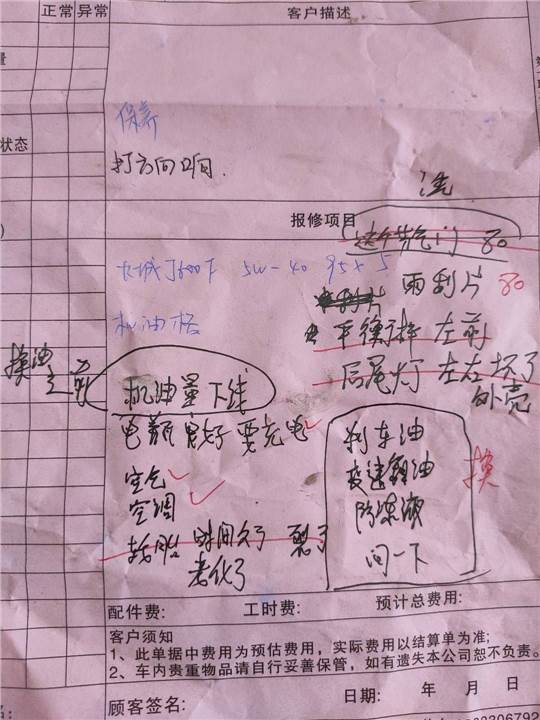 正常 异常 客户描述
状态
保养
打方向
洗
报修项目
这个节气门 80
5W-40 95×5
雨刮片 80
机油格
平衡杆 左前
换油
后尾灯 左右坏了
外壳
机油量下线
电瓶 良好 要充电
刹车油
空气
变速箱油
换
空调
防冻液
轮胎 时间久了 裂了
老化了
问一下
配件费: 工时费: 预计总费用:
客户须知
1、此单据中费用为预估费用，实际费用以结算单为准;
2、车内贵重物品请自行妥善保管，如有遗失本公司恕不负责。
顾客签名: 日期: 年 月 日